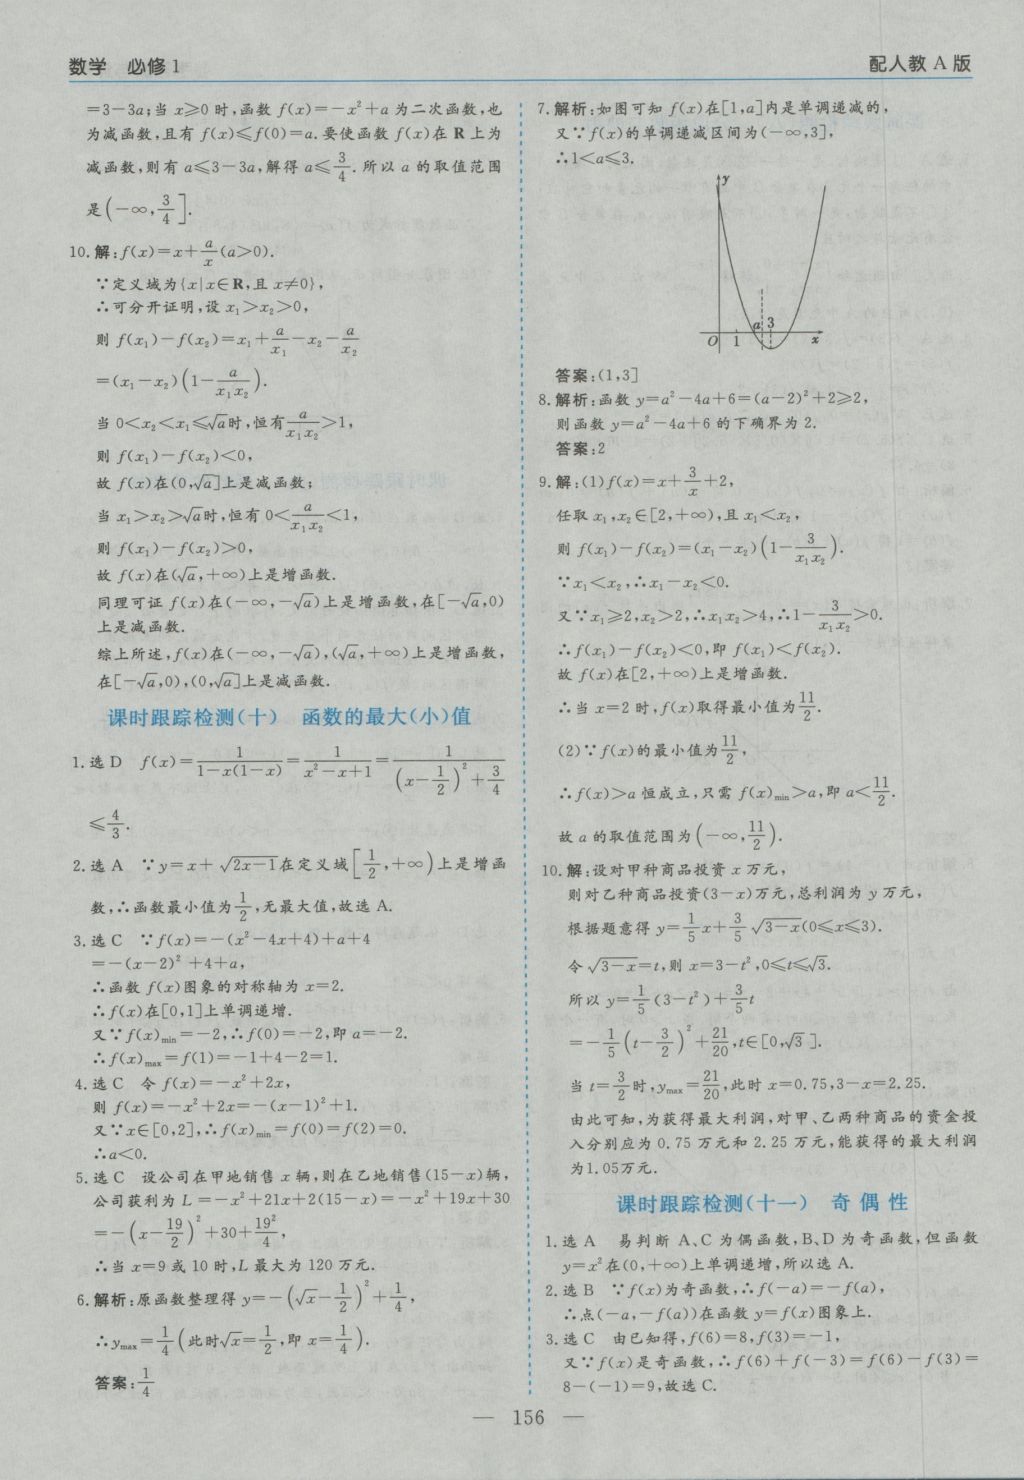 数学　必修1
配人教A版
=3-3a;当 x≥0 时,函数 f(x)=-x²+a 为二次函数,也
为减函数,且有 f(x)≤f(0)=a.要使函数 f(x)在 R 上为
减函数,则有 a≤3-3a,解得 a≤3/4.所以 a 的取值范围
是(-∞,3/4].
10.解:f(x)=x+a/x(a>0).
∵定义域为{x|x∈R,且 x≠0},
∴可分开证明,设 x₁>x₂>0,
则 f(x₁)-f(x₂)=x₁+a/x₁-x₂-a/x₂
=(x₁-x₂)(1-a/(x₁x₂)).
当 0<x₂<x₁≤√a时,恒有a/(x₁x₂)>1,
则 f(x₁)-f(x₂)<0,
故 f(x)在(0,√a]上是减函数;
当 x₁>x₂>√a时,恒有 0<a/(x₁x₂)<1,
则 f(x₁)-f(x₂)>0,
故 f(x)在(√a,+∞)上是增函数.
同理可证 f(x)在(-∞,-√a)上是增函数,在[-√a,0)
上是减函数.
综上所述,f(x)在(-∞,-√a),(√a,+∞)上是增函数,
在[-√a,0),(0,√a]上是减函数.
课时跟踪检测(十)　函数的最大(小)值
1.选 D　f(x)=1/(1-x(1-x))=1/(x²-x+1)=1/((x-1/2)²+3/4)
≤4/3.
2.选 A　∵y=x+√(2x-1)在定义域[1/2,+∞)上是增函
数,∴函数最小值为1/2,无最大值,故选 A.
3.选 C　∵f(x)=-(x²-4x+4)+a+4
=-(x-2)²+4+a,
∴函数 f(x)图象的对称轴为 x=2.
∴f(x)在[0,1]上单调递增.
又∵f(x)min=-2,∴f(0)=-2,即 a=-2.
∴f(x)max=f(1)=-1+4-2=1.
4.选 C　令 f(x)=-x²+2x,
则 f(x)=-x²+2x=-(x-1)²+1.
又∵x∈[0,2],∴f(x)min=f(0)=f(2)=0.
∴a<0.
5.选 C　设公司在甲地销售 x 辆,则在乙地销售(15-x)辆,
公司获利为 L=-x²+21x+2(15-x)=-x²+19x+30
=-(x-19/2)²+30+19²/4,
∴当 x=9 或 10 时,L 最大为 120 万元.
6.解析:原函数整理得 y=-(√x-1/2)²+1/4,
∴ymax=1/4(此时√x=1/2,即 x=1/4).
答案:1/4
7.解析:如图可知 f(x)在[1,a]内是单调递减的,
又∵f(x)的单调递减区间为(-∞,3],
∴1<a≤3.
y
a 3
O 1 x
答案:(1,3]
8.解析:函数 y=a²-4a+6=(a-2)²+2≥2,
则函数 y=a²-4a+6 的下确界为 2.
答案:2
9.解:(1)f(x)=x+3/x+2,
任取 x₁,x₂∈[2,+∞),且 x₁<x₂,
则 f(x₁)-f(x₂)=(x₁-x₂)(1-3/(x₁x₂)).
∵x₁<x₂,∴x₁-x₂<0.
又∵x₁≥2,x₂>2,∴x₁x₂>4,∴1-3/(x₁x₂)>0.
∴f(x₁)-f(x₂)<0,即 f(x₁)<f(x₂).
故 f(x)在[2,+∞)上是增函数.
∴当 x=2 时,f(x)取得最小值为11/2.
(2)∵f(x)的最小值为11/2,
∴f(x)>a 恒成立,只需 f(x)min>a,即 a<11/2.
故 a 的取值范围为(-∞,11/2).
10.解:设对甲种商品投资 x 万元,
则对乙种商品投资(3-x)万元,总利润为 y 万元,
根据题意得 y=1/5x+3/5√(3-x)(0≤x≤3).
令√(3-x)=t,则 x=3-t²,0≤t≤√3.
所以 y=1/5(3-t²)+3/5t
=-1/5(t-3/2)²+21/20,t∈[0,√3].
当 t=3/2时,ymax=21/20,此时 x=0.75,3-x=2.25.
由此可知,为获得最大利润,对甲、乙两种商品的资金投
入分别应为 0.75 万元和 2.25 万元,能获得的最大利润
为1.05万元.
课时跟踪检测(十一)　奇 偶 性
1.选 A　易判断 A、C 为偶函数,B、D 为奇函数,但函数
y=x²在(0,+∞)上单调递增,所以选 A.
2.选 B　∵f(x)为奇函数,∴f(-a)=-f(a),
∴点(-a,-f(a))在函数 y=f(x)图象上.
3.选 C　由已知得,f(6)=8,f(3)=-1,
又∵f(x)是奇函数,∴f(6)+f(-3)=f(6)-f(3)=
8-(-1)=9,故选 C.
— 156 —